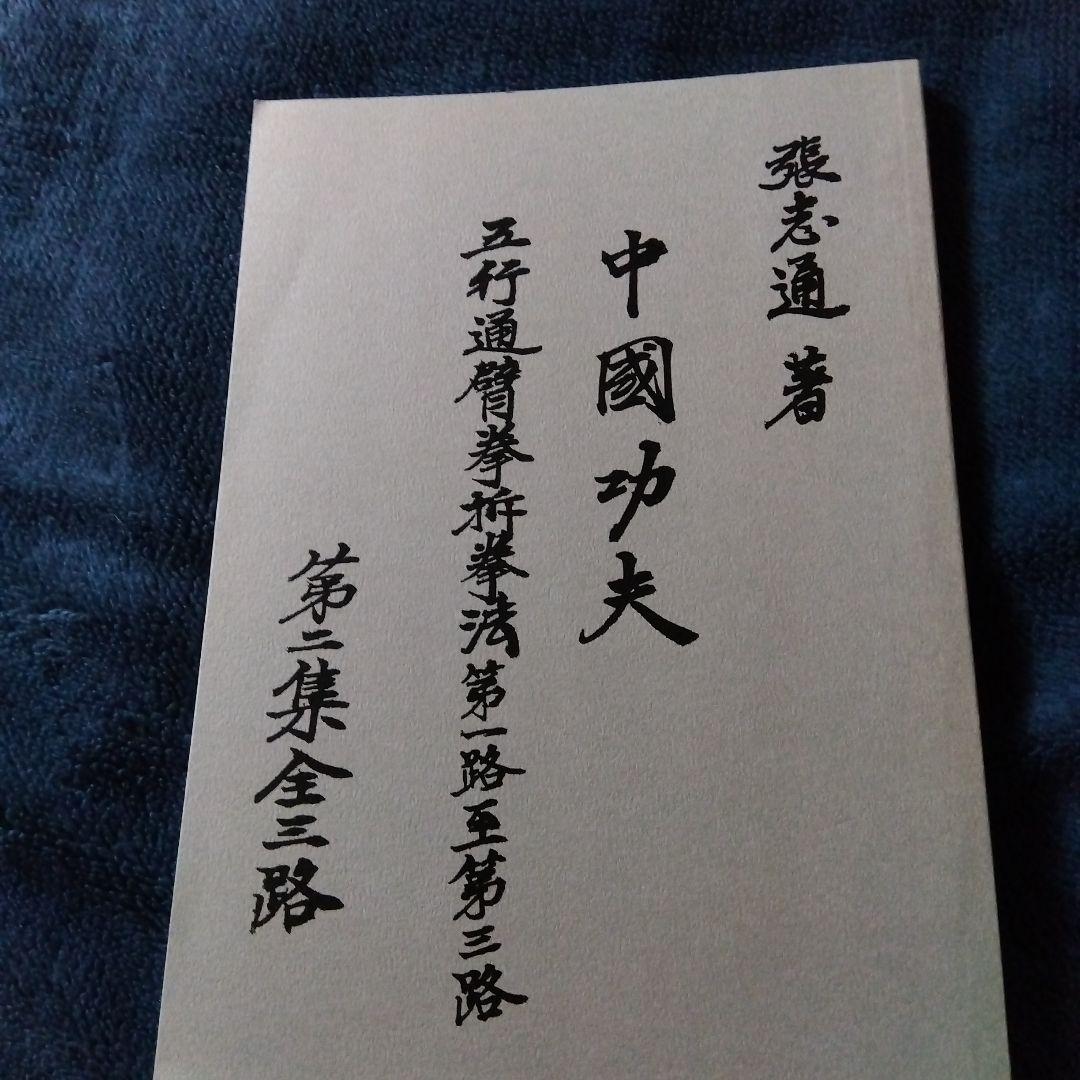 張志通 著
中國功夫
五行通臂拳拆拳法第一路至第三路
第二集全三路